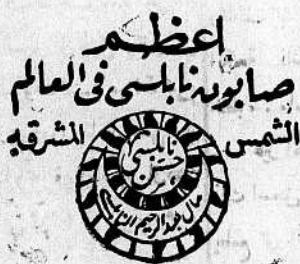 اعظم
صابون نابلسى فى العالم
الشمس المشرقه
نابلسي
حسن
مال عبد الرحيم النابلسي